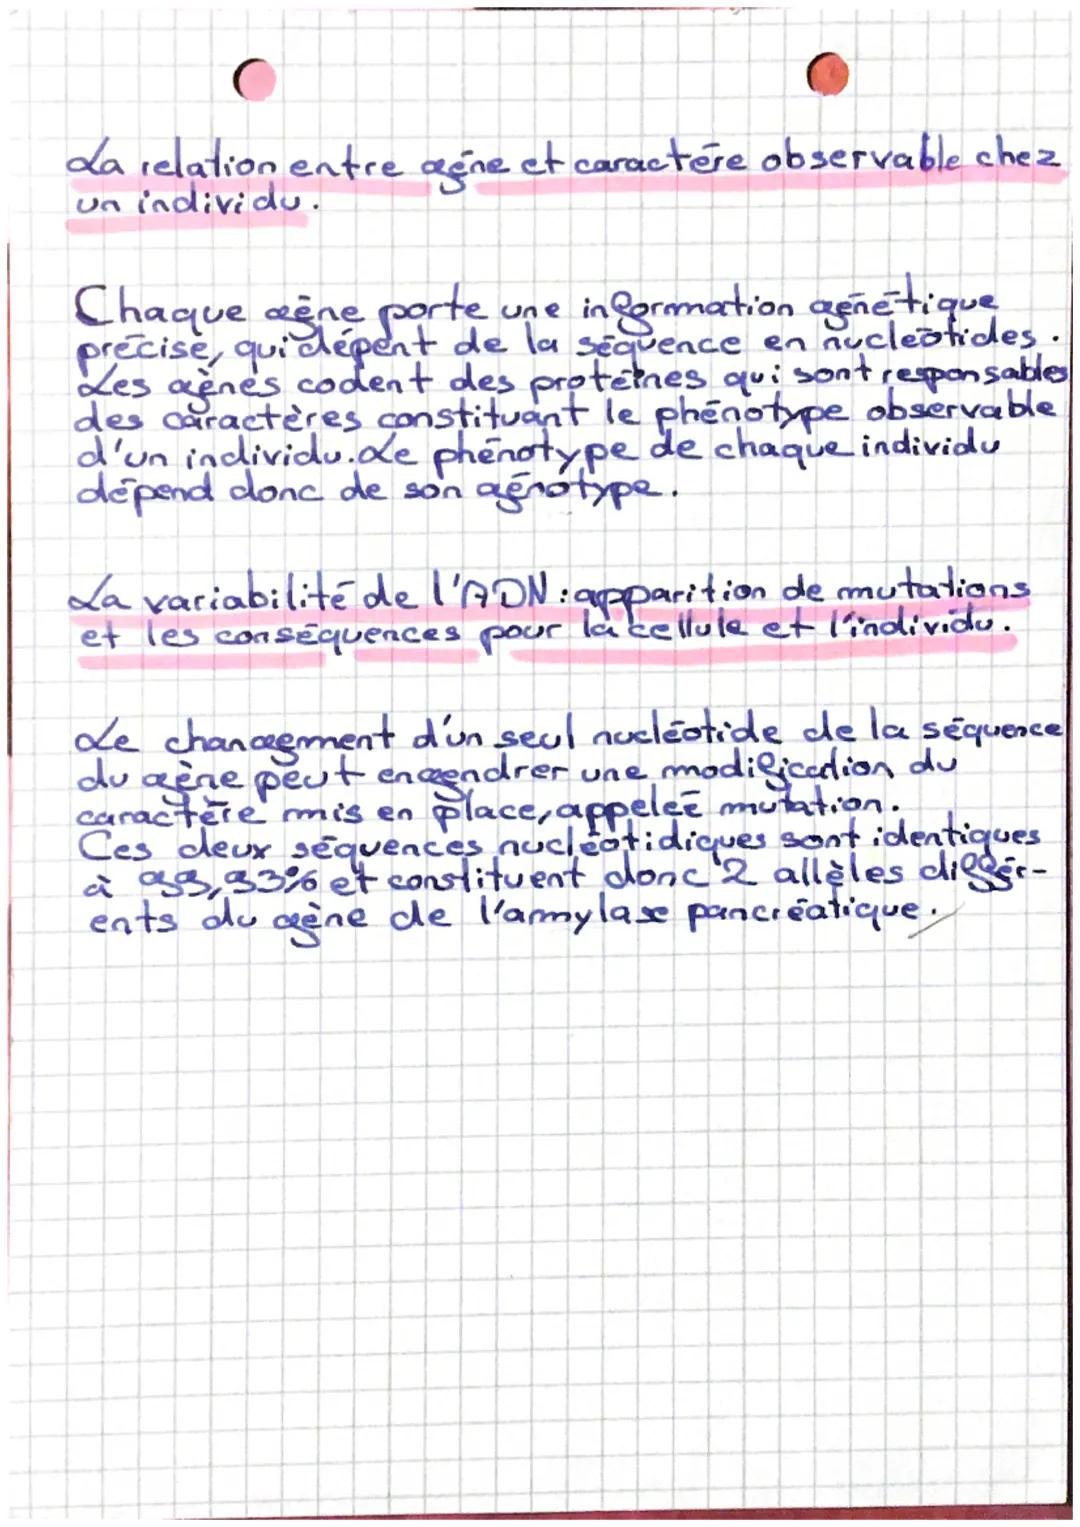 La relation entre gène et caractère observable chez
un individu.
Chaque gène porte une information génétique
précise, qui dépent de la séquence en nucléotides.
Les gènes codent des protéines qui sont responsables
des caractères constituant le phénotype observable
d'un individu. Le phénotype de chaque individu
dépend donc de son génotype.
La variabilité de l'ADN : apparition de mutations
et les conséquences pour la cellule et l'individu.
Le changement d'un seul nucléotide de la séquence
du gène peut engendrer une modification du
caractère mis en place, appelée mutation.
Ces deux séquences nucléotidiques sont identiques
à 99,93% et constituent donc 2 allèles différ-
ents du gène de l'amylase pancréatique.